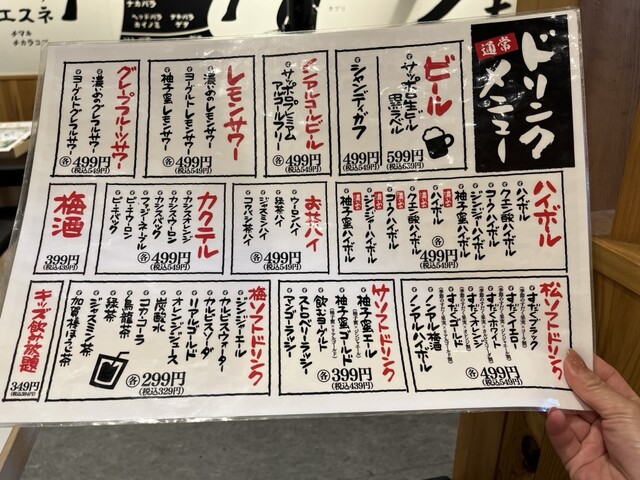 通常
ドリンク
メニュー
ビール
サッポロ生ビール
黒ラベル
599円
(税込659円)
シャンディガフ
499円
(税込549円)
ノンアルコールビール
サッポロプレミアム
アルコールフリー
各499円
(税込549円)
レモンサワー
濃いめのレモンサワー
ヨーグルトレモンサワー
柚子蜜レモンサワー
各499円
(税込549円)
グレープフルーツサワー
濃いめのグレフルサワー
ヨーグルトグレフルサワー
各499円
(税込549円)
ハイボール
ハイボール
クエン酸ハイボール
コークハイボール
ジンジャーハイボール
柚子蜜ハイボール
ハイボール
クエン酸ハイボール
コークハイボール
ジンジャーハイボール
柚子蜜ハイボール
各499円
(税込549円)
お茶ハイ
ウーロンハイ
緑茶ハイ
ジャスミンハイ
コカパン茶ハイ
各499円
(税込549円)
カクテル
カシスオレンジ
カシスウーロン
カシスパック
ファジーネーブル
ピーチウーロン
ピーチパック
各499円
(税込549円)
梅酒
399円
(税込439円)
松ソフトドリンク
すだくブラック
すだくイエロー
すだくホワイト
すだくオレンジ
すだくゴールド
ノンアル梅酒
ノンアルハイボール
各499円
(税込549円)
竹ソフトドリンク
柚子蜜エール
柚子蜜ゴールド
飲むヨーグルト
ストロベリーラッシー
マンゴーラッシー
各399円
(税込439円)
梅ソフトドリンク
ジンジャーエール
カルピスウォーター
カルピスソーダ
リアルゴールド
オレンジジュース
炭酸水
コカ・コーラ
烏龍茶
緑茶
ジャスミン茶
加賀棒ほうじ茶
各299円
(税込329円)
キッズ飲み放題
349円
エスネ
チマル
チカラコブ
ヘッドバラ
カイノミ
ナカバラ
ササ